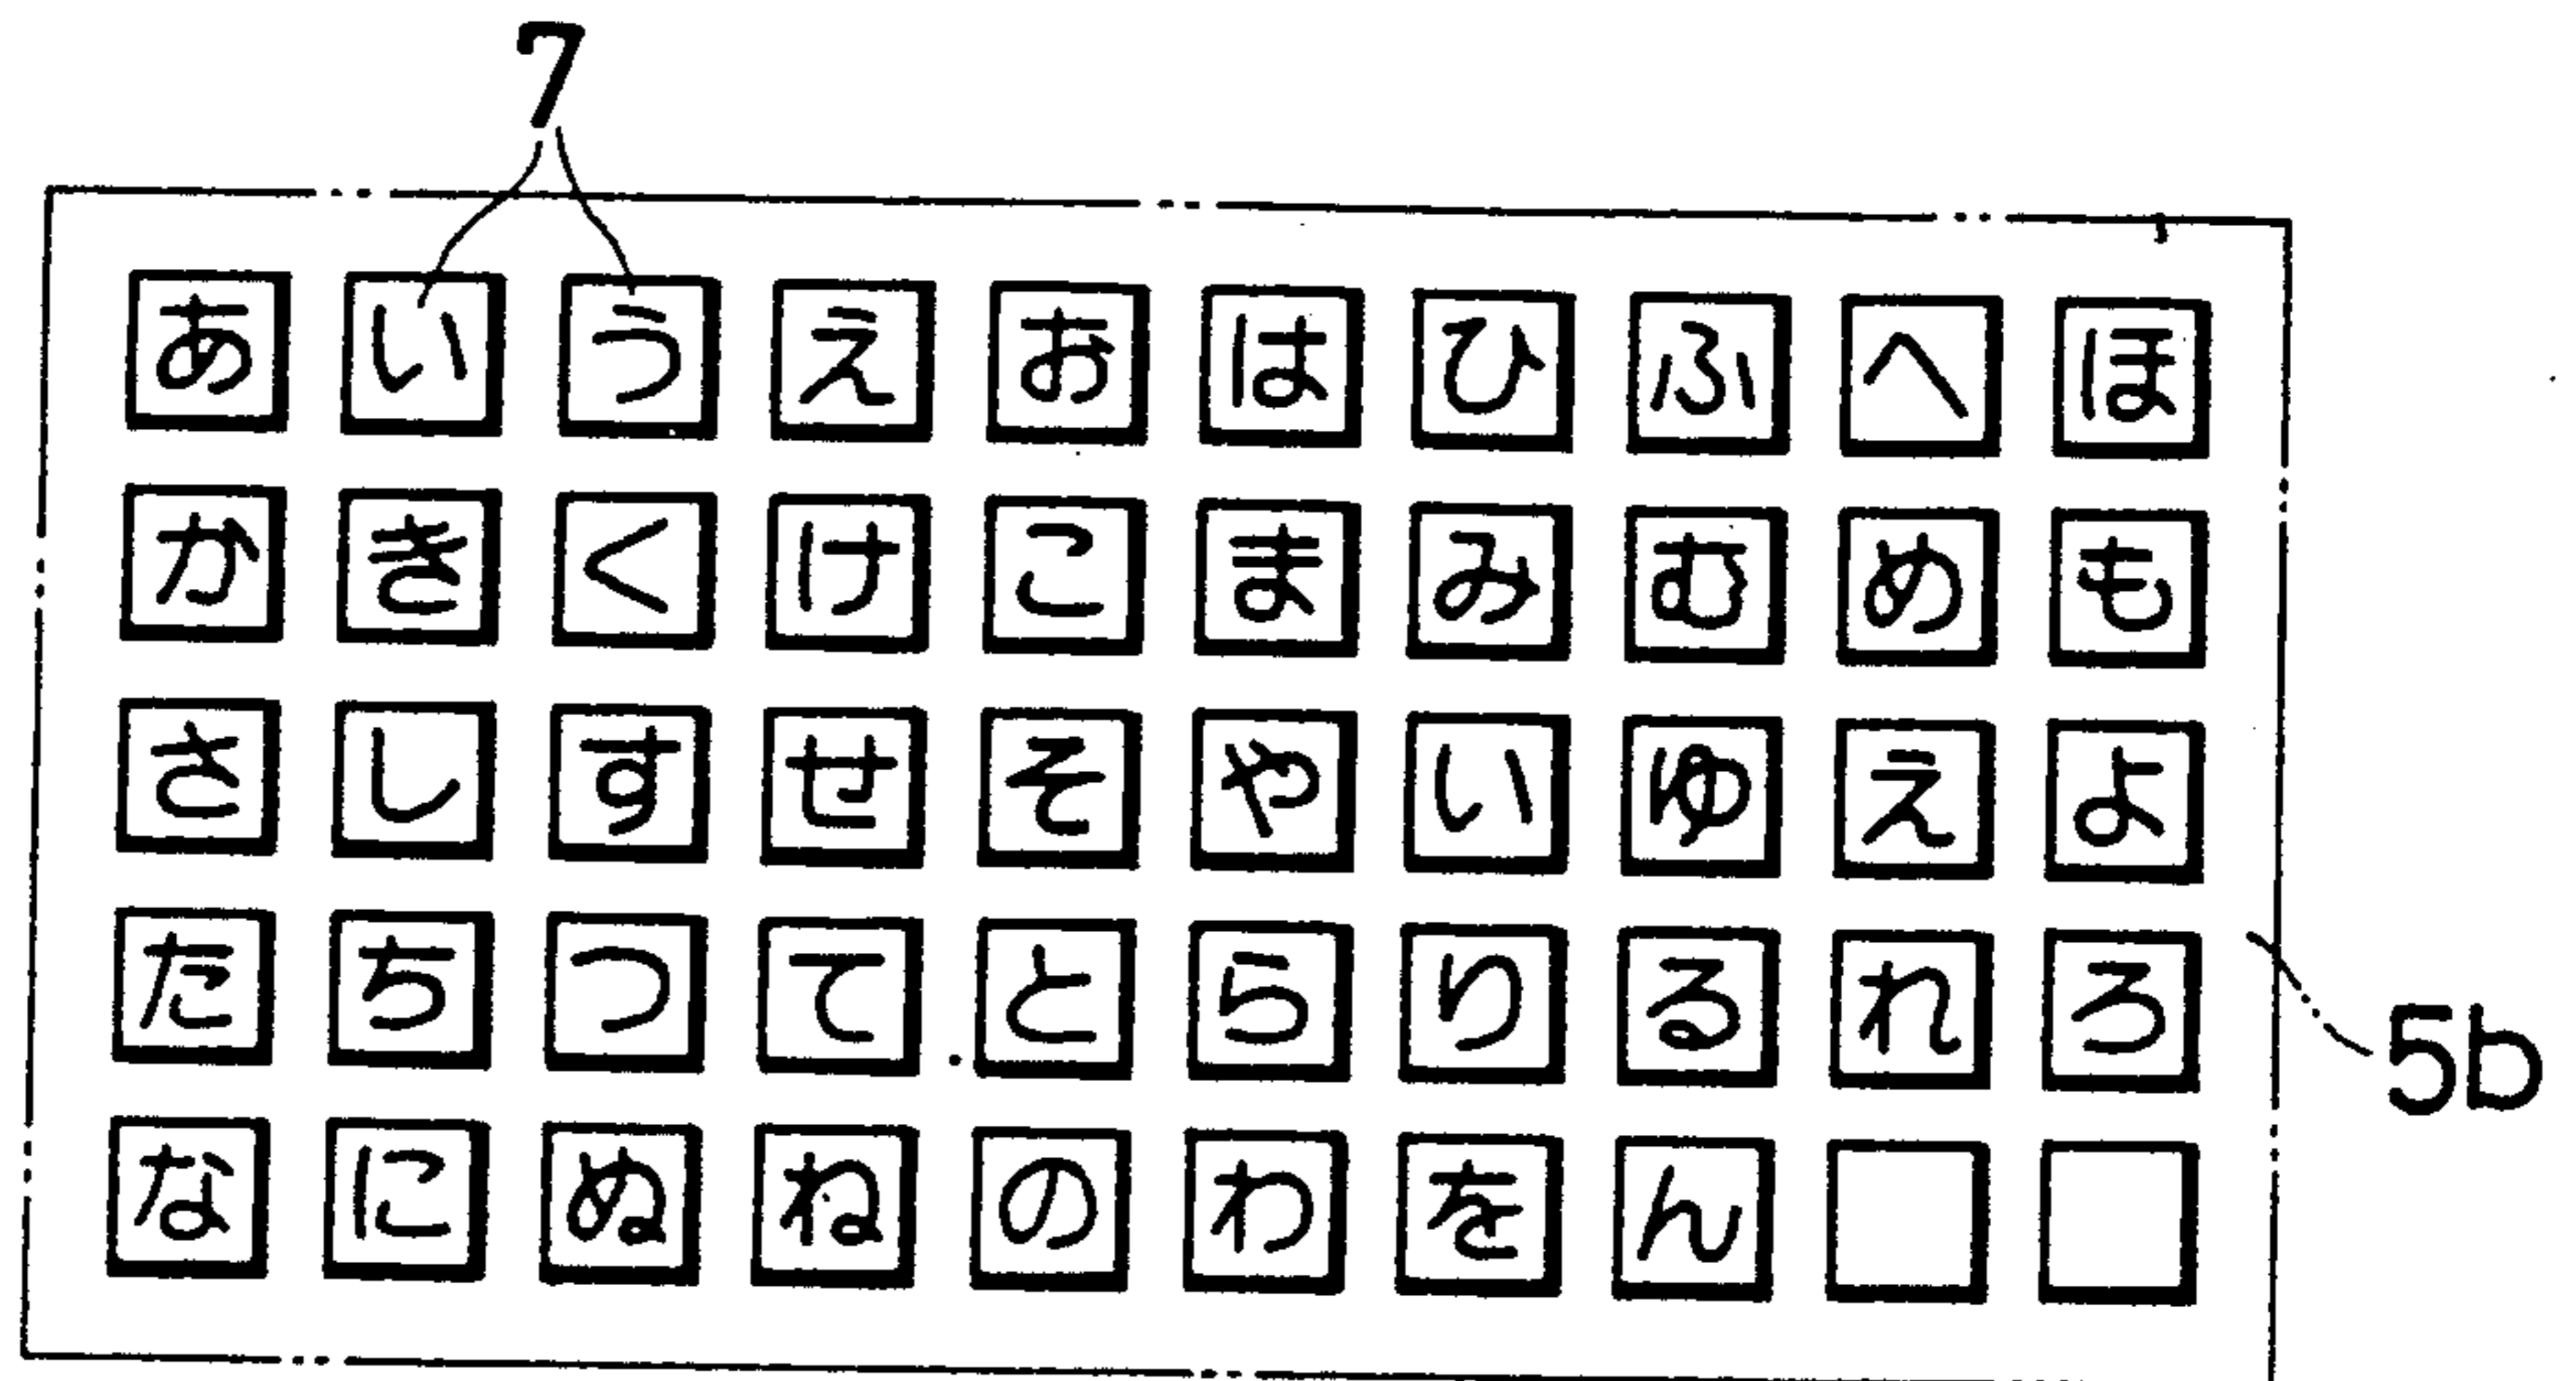 7
あ い う え お は ひ ふ へ ほ
か き く け こ ま み む め も
さ し す せ そ や い ゆ え よ
た ち つ て と ら り る れ ろ
な に ぬ ね の わ を ん
5b